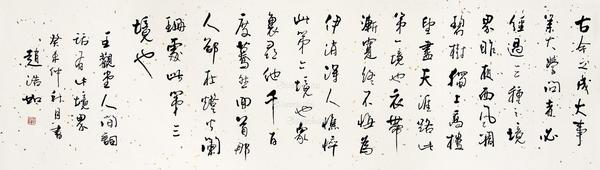 古今之成大事
業大學問者必
經過三種之境
界昨夜西風凋
碧樹獨上高樓
望盡天涯路此
第一境也衣帶
漸寬終不悔為
伊消得人憔悴
此第二境也眾
裏尋他千百
度驀然回首那
人卻在燈火闌
珊處此第三
境也
王觀堂人間詞
話此境界
癸未仲秋月書
趙浩如